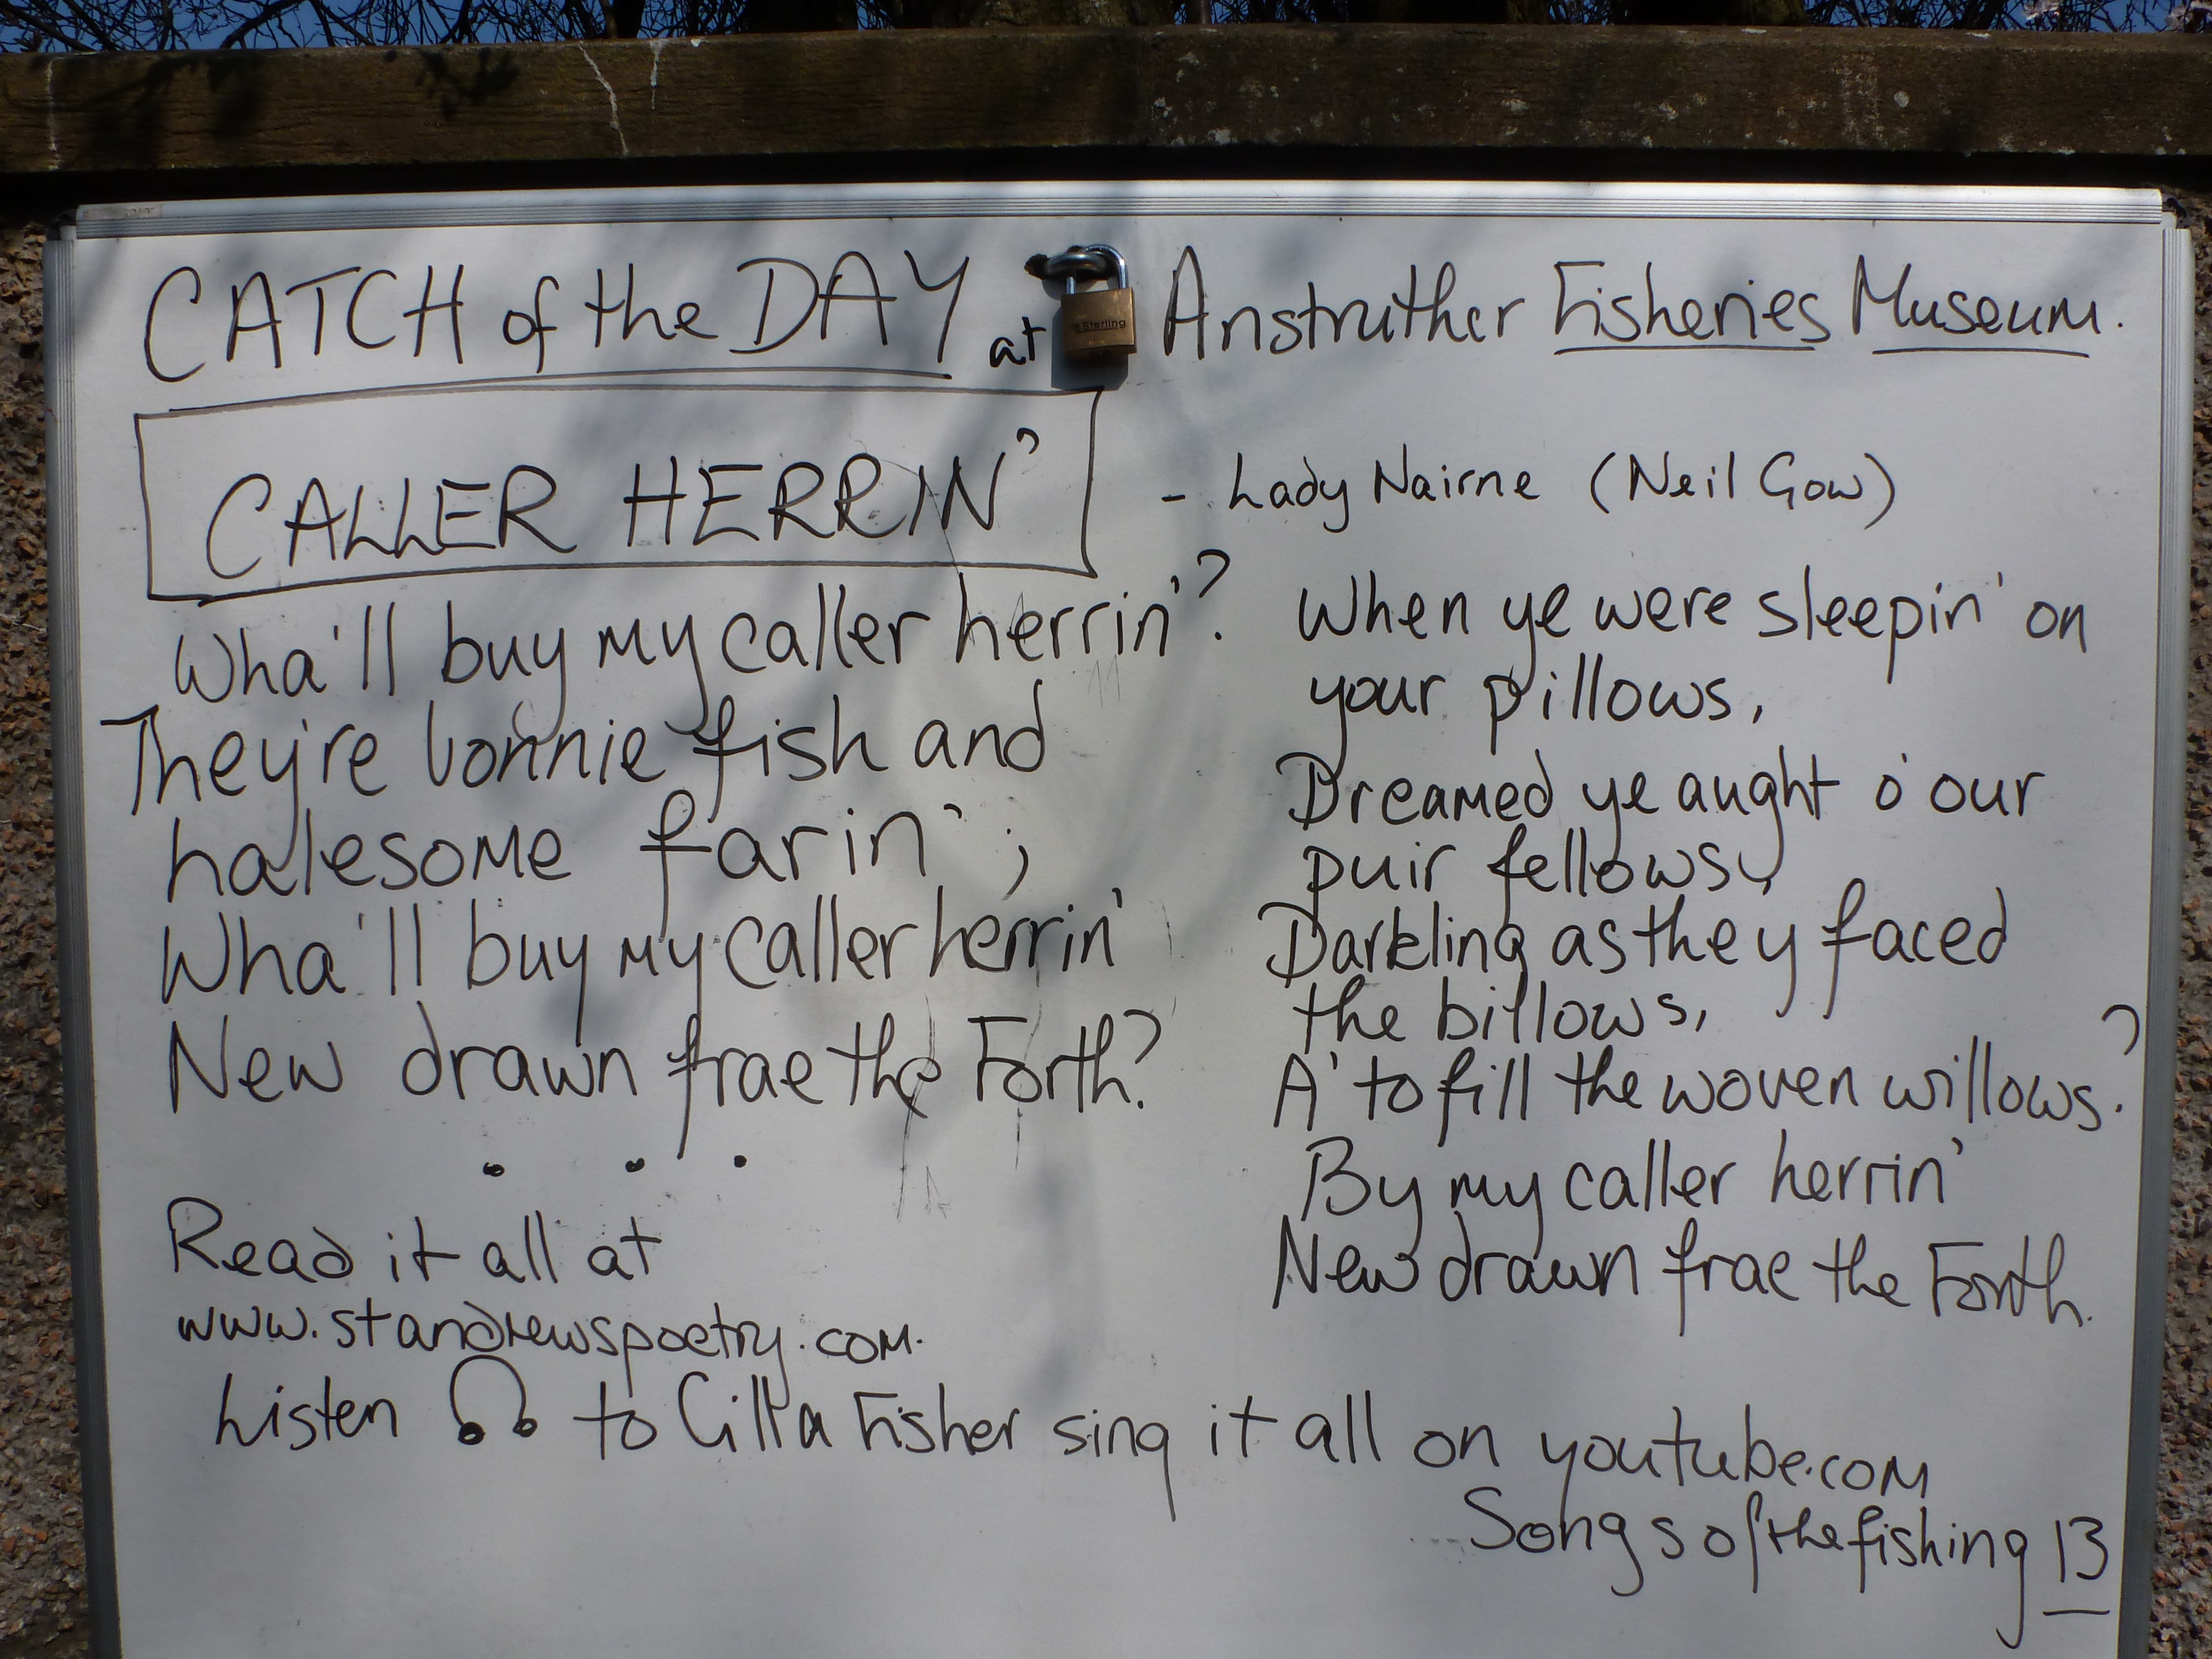 CATCH of the DAY at Anstruther Fisheries Museum.
Sterling
CALLER HERRIN'
- Lady Nairne (Neil Gow)
Wha'll buy my caller herrin'?
They're bonnie fish and
halesome farin';
Wha'll buy my caller herrin'
New drawn frae the Forth?
. . .
When ye were sleepin' on
your pillows,
Dreamed ye aught o' our
puir fellows,
Darkling as they faced
the billows,
A' to fill the woven willows?
By my caller herrin'
New drawn frae the Forth.
Read it all at
www.standrewspoetry.com.
Listen to Cilla Fisher sing it all on youtube.com
Songs of the fishing 13